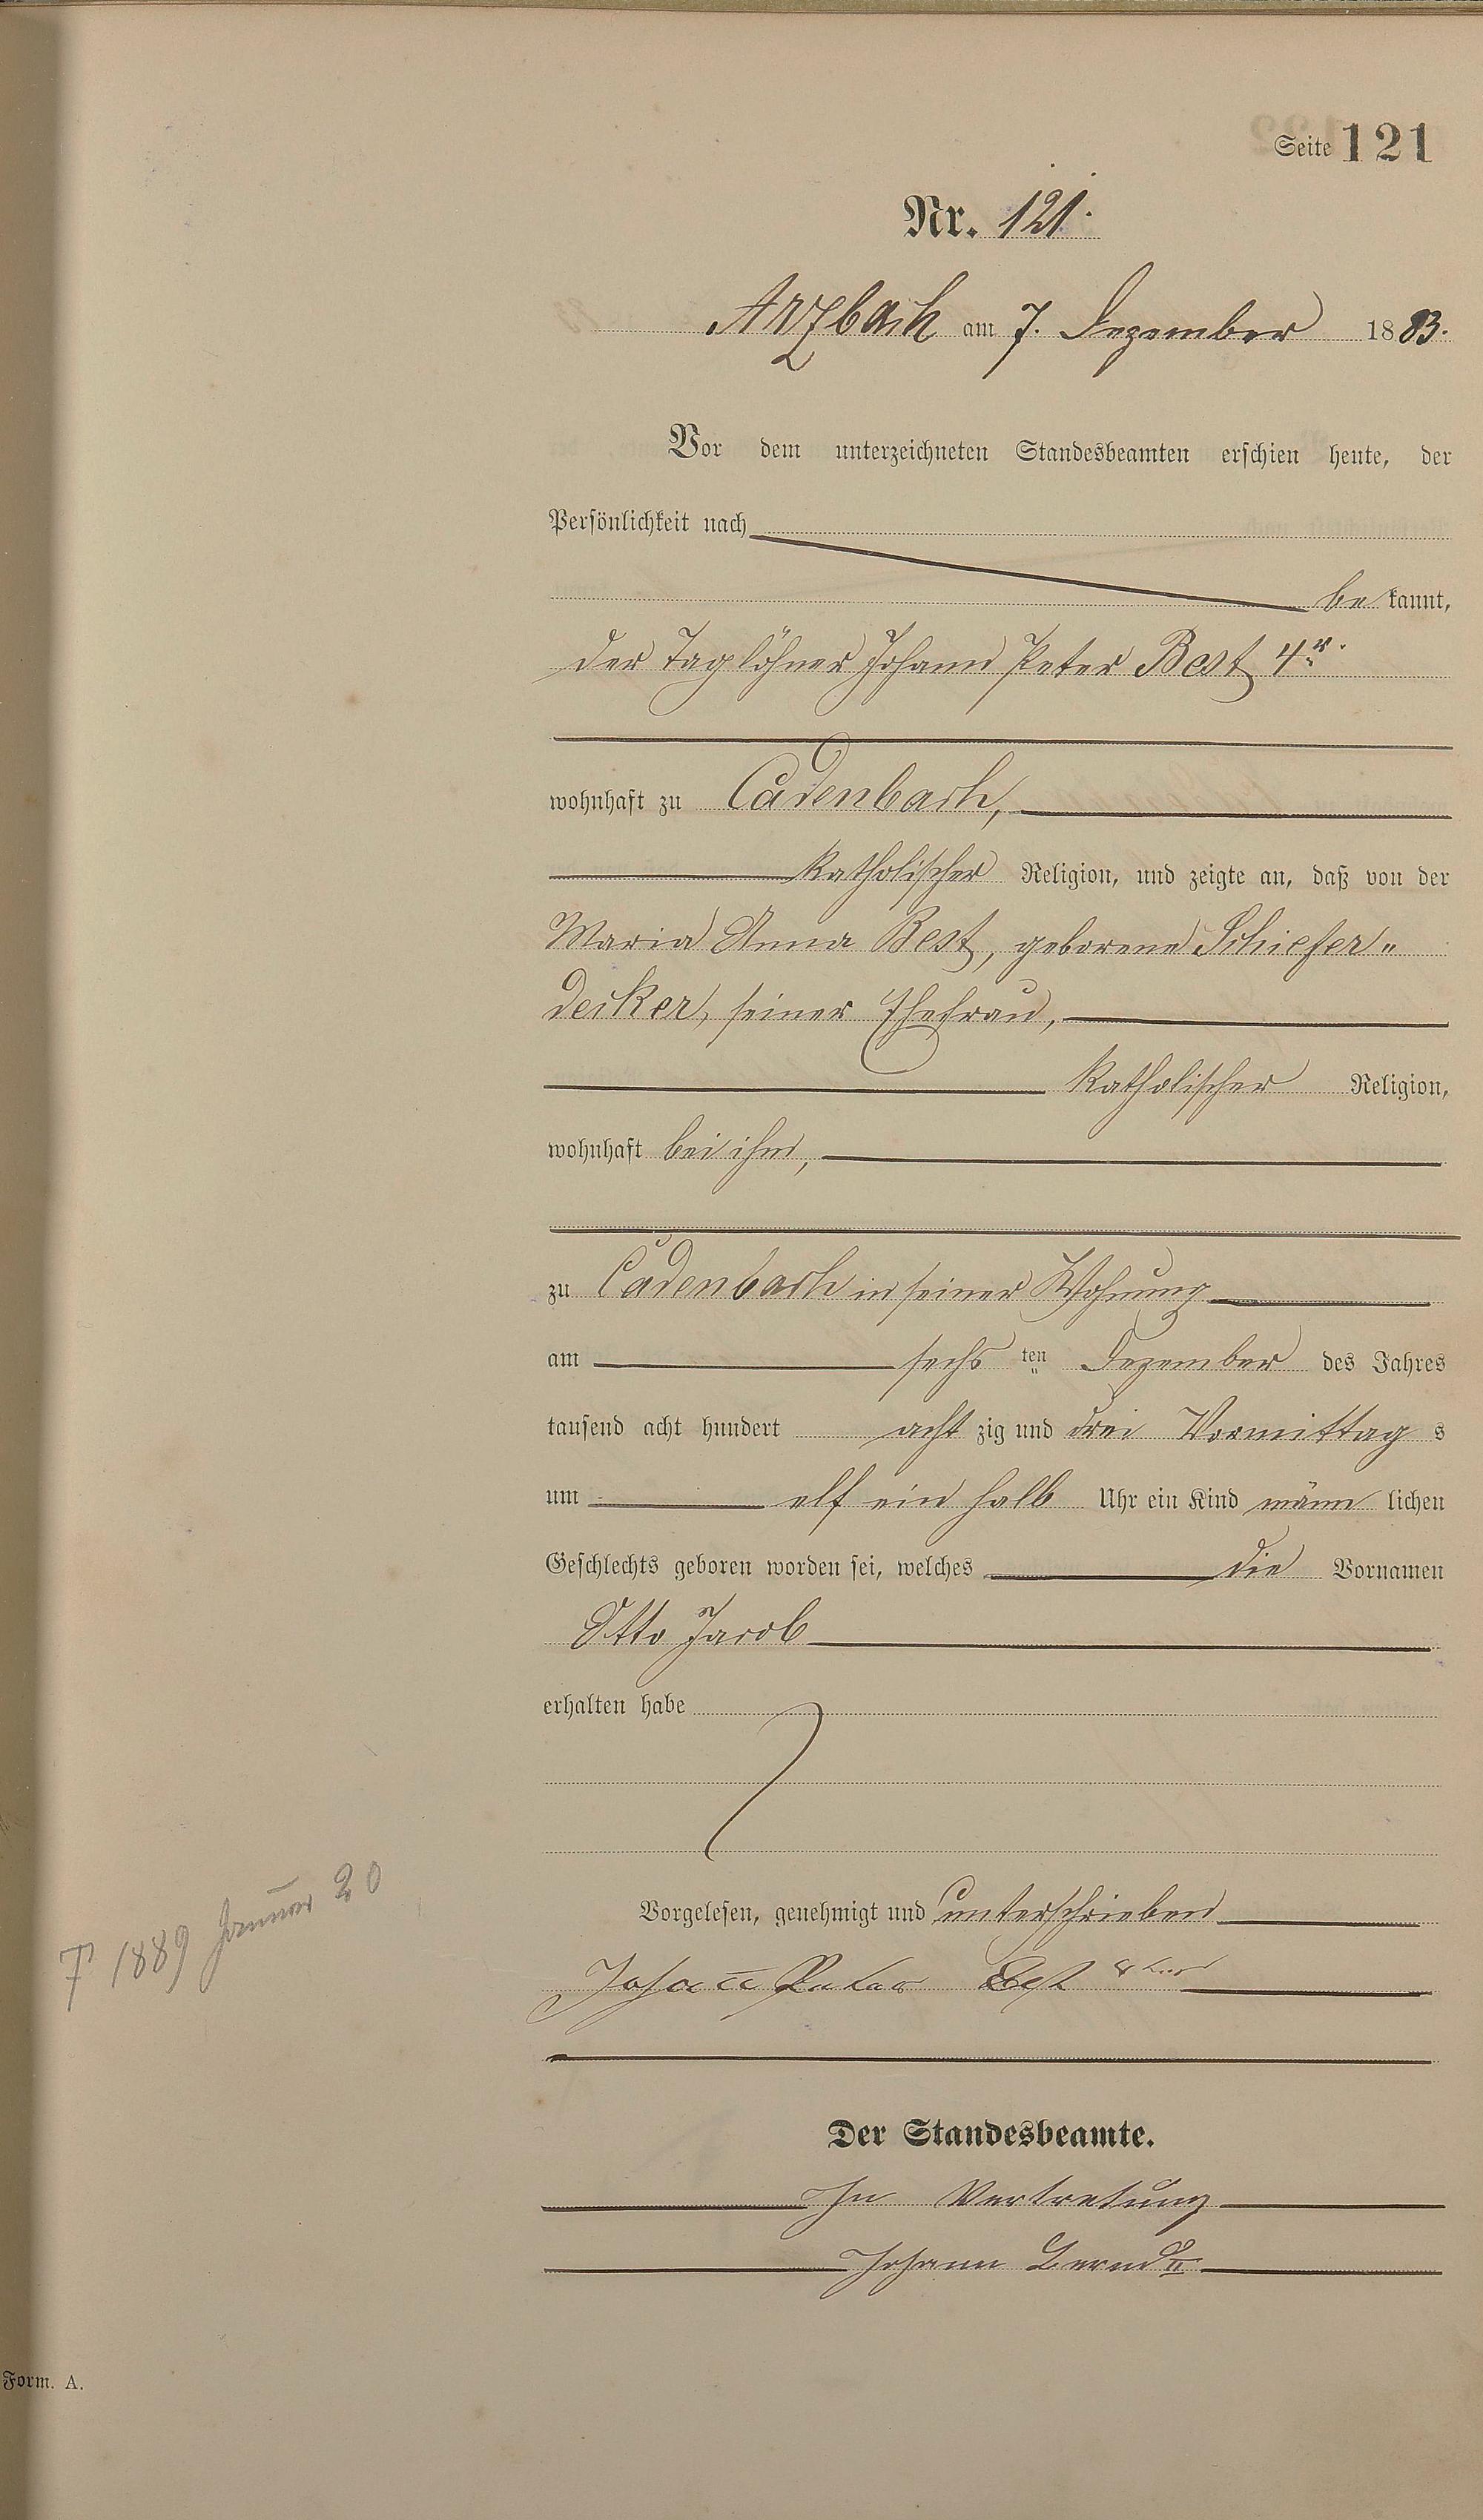 Seite 121
Nr. 121.
Arzbach am 7. Dezember 1883.
Vor dem unterzeichneten Standesbeamten erschien heute, der
Persönlichkeit nach
be kannt,
der Taglöhner Johann Peter Best 4r.
wohnhaft zu Cadenbach,
katholischer Religion, und zeigte an, daß von der
Maria Anna Best, geborene Schiefer„
decker, seiner Ehefrau,
katholischer Religion,
wohnhaft bei ihm,
zu Cadenbach in seiner Wohnung
am sechs ten Dezember des Jahres
tausend acht hundert acht zig und drei Vormittag s
um elf ein halb Uhr ein Kind männ lichen
Geschlechts geboren worden sei, welches die Vornamen
Otto Jacob
erhalten habe
† 1889 Januar 20
Vorgelesen, genehmigt und unterschrieben
Johann Peter Best
Der Standesbeamte.
In Vertretung
Johann
Form. A.